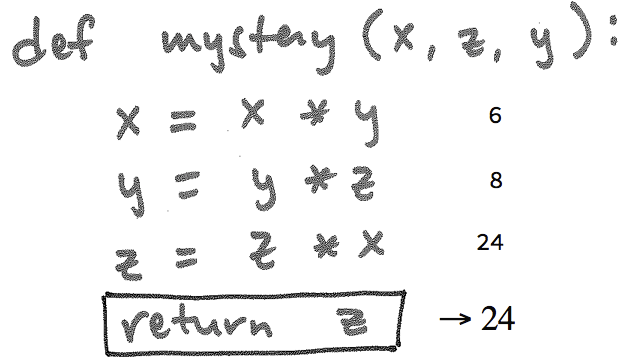 def mystery (x, z, y):
x = x * y 6
y = y * z 8
z = z * x 24
return z → 24